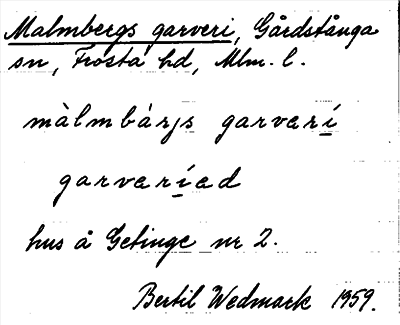 Malmbergs garveri, Gårdstånga
sn, Frosta hd, Mlm. l.
màlmbárjs garværí
garværíed
hus å Getinge nr 2.
Bertil Wedmark 1959.